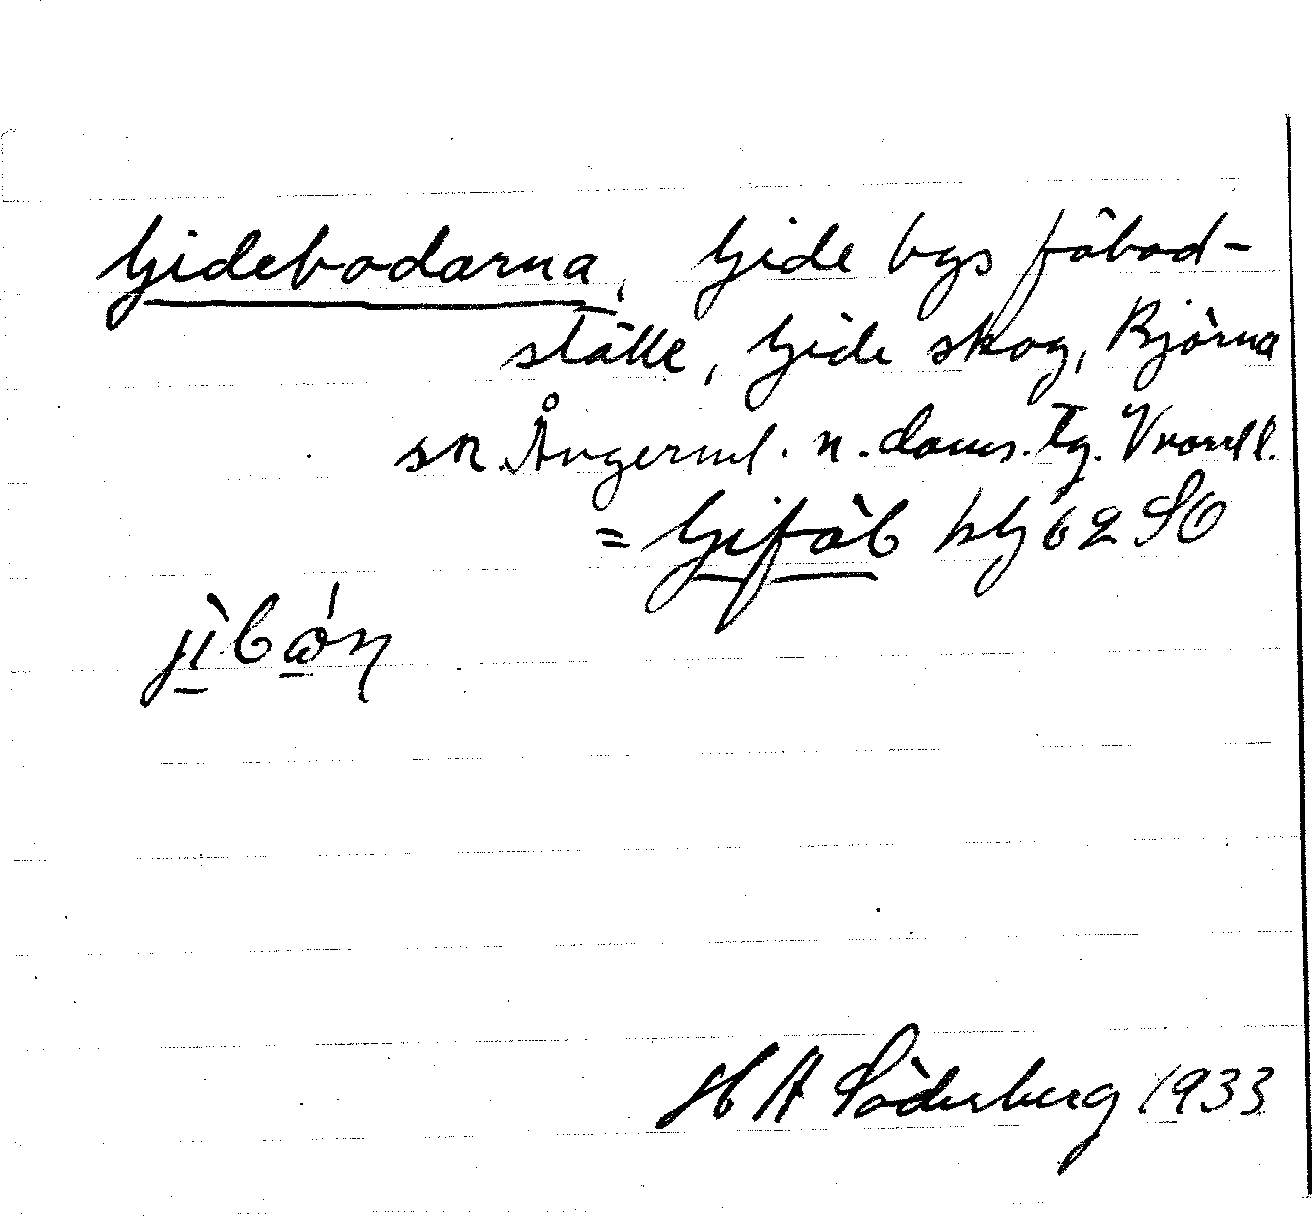 Gidebodarna, Gide bys fäbod-
ställe, Gide skog, Björna
sn. Ångerml. n. doms. tg. Vnorrl.
= Gifäb hg 62 SO
H A Söderberg 1933